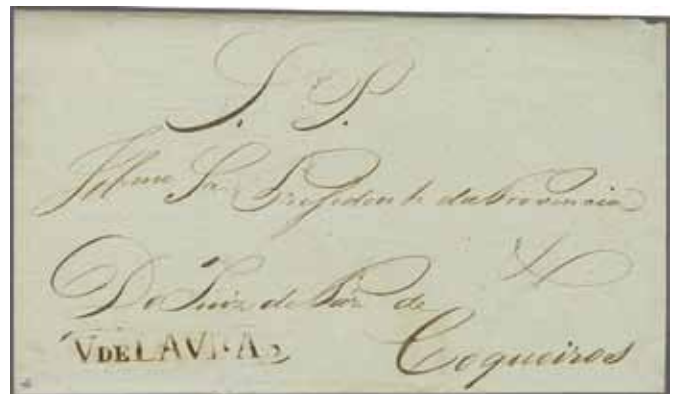 S. P.
Illmo Snr Presidente da Provincia
Do Juiz de Paz de
V DE LAVRAS Coqueiroes